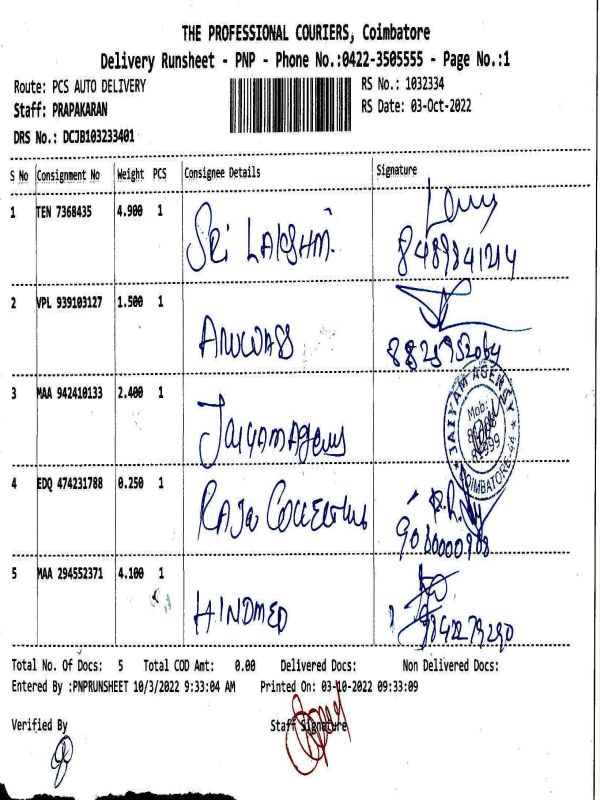 THE PROFESSIONAL COURIERS, Coimbatore
Delivery Runsheet - PNP - Phone No.:0422-3505555 - Page No.:1
Route: PCS AUTO DELIVERY
RS No.: 1032334
Staff: PRAPAKARAN
RS Date: 03-Oct-2022
DRS No.: DCJB103233401
S No Consignment No Weight PCS Consignee Details Signature
1 TEN 7368435 4.900 1 SRi LAKSHMI
8489841214
2 VPL 939103127 1.500 1
3 MAA 942410133 2.400 1 JAIYAM Agency
JAIYAM AGENCY
Mob:
COIMBATORE-44
4 EDQ 474231788 0.250 1 RAJA
5 MAA 294552371 4.100 1 HINDMED
9842279290
Total No. Of Docs: 5 Total COD Amt: 0.00 Delivered Docs: Non Delivered Docs:
Entered By :PNPRUNSHEET 10/3/2022 9:33:04 AM Printed On: 03-10-2022 09:33:09
Verified By Staff Signature